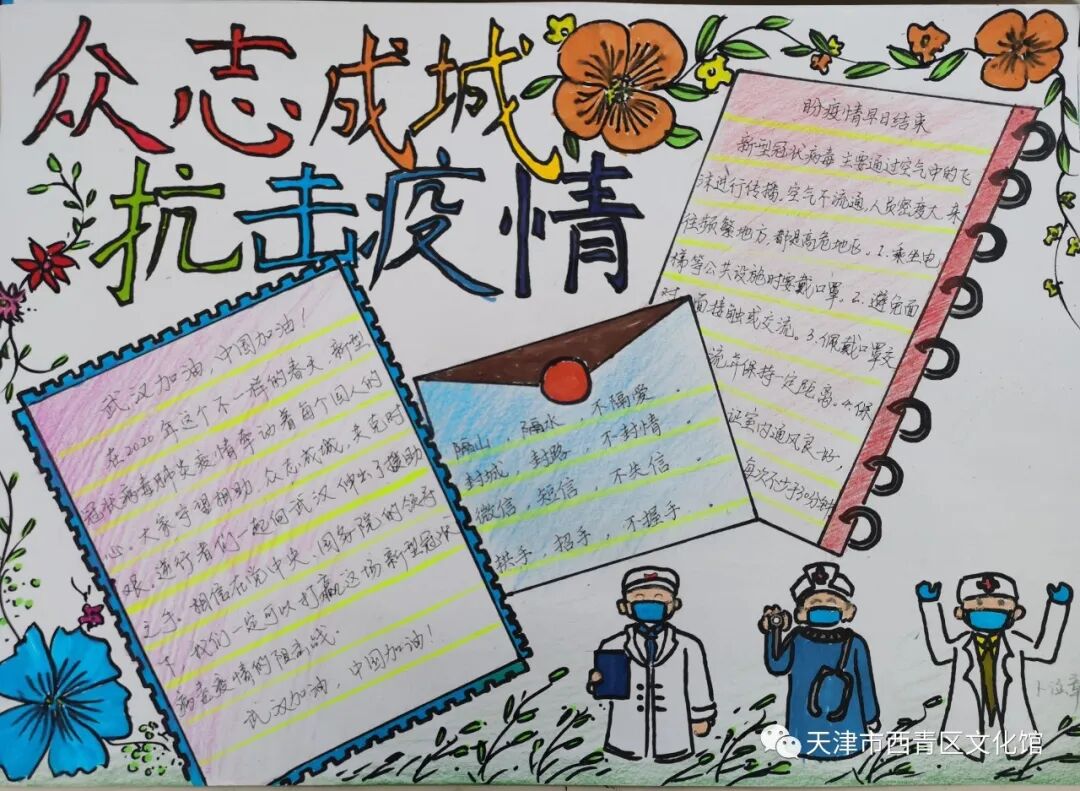 众志成城
抗击疫情
武汉加油，中国加油！
在2020年这个不一样的春天，新型
冠状病毒肺炎疫情牵动着每个国人的
心。大家守望相助，众志成城，共克时
艰。逆行者们一起向武汉伸出了援助
之手。相信在党中央、国务院的领导
下，我们一定可以打赢这场新型冠状
病毒疫情的阻击战。
武汉加油，中国加油！
隔山，隔水，不隔爱。
封城，封路，不封情。
微信，短信，不失信。
拱手，招手，不握手。
盼疫情早日结束
新型冠状病毒主要通过空气中的飞
沫进行传播。空气不流通，人员密度大，来
往频繁地方，都提高危地区。1.乘坐电
梯等公共设施时要戴口罩。2.避免面
对面接触或交流。3.佩戴口罩交
流并保持一定距离。4.保
证室内通风良好，
每次不少于30分钟
天津市西青区文化馆